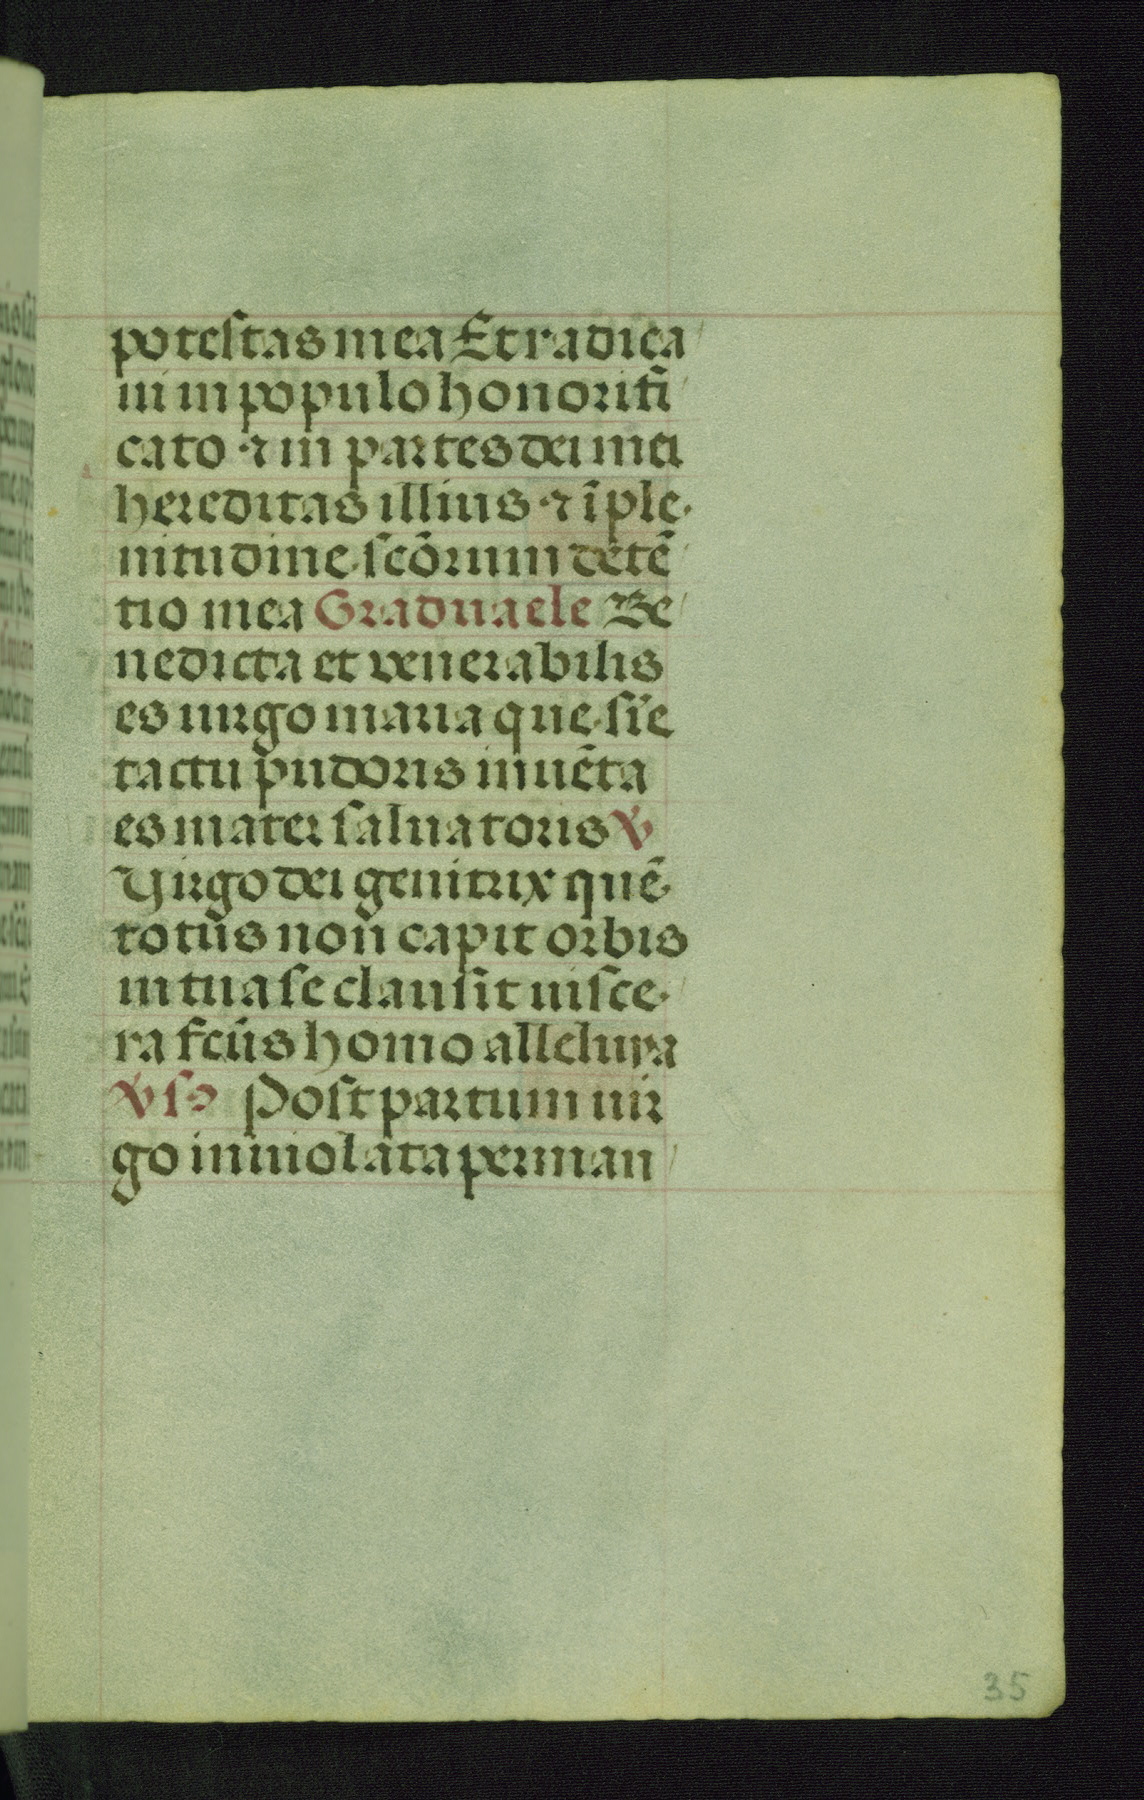 potestas mea Et radica
ui in populo honorifi
cato ⁊ in partes dei mei
hereditas illius ⁊ ī ple
nitudine scōrum detē
tio mea Graduaele Be
nedicta et venerabilis
es uirgo maria que sīe
tactu pudoris inuēta
es mater saluatoris ℣
Virgo dei genitrix quē
totus non capit orbis
in tua se clausit uisce
ra fcūs homo alleluya
℣ sꝰ Post partum uir
go inuiolata perman
35